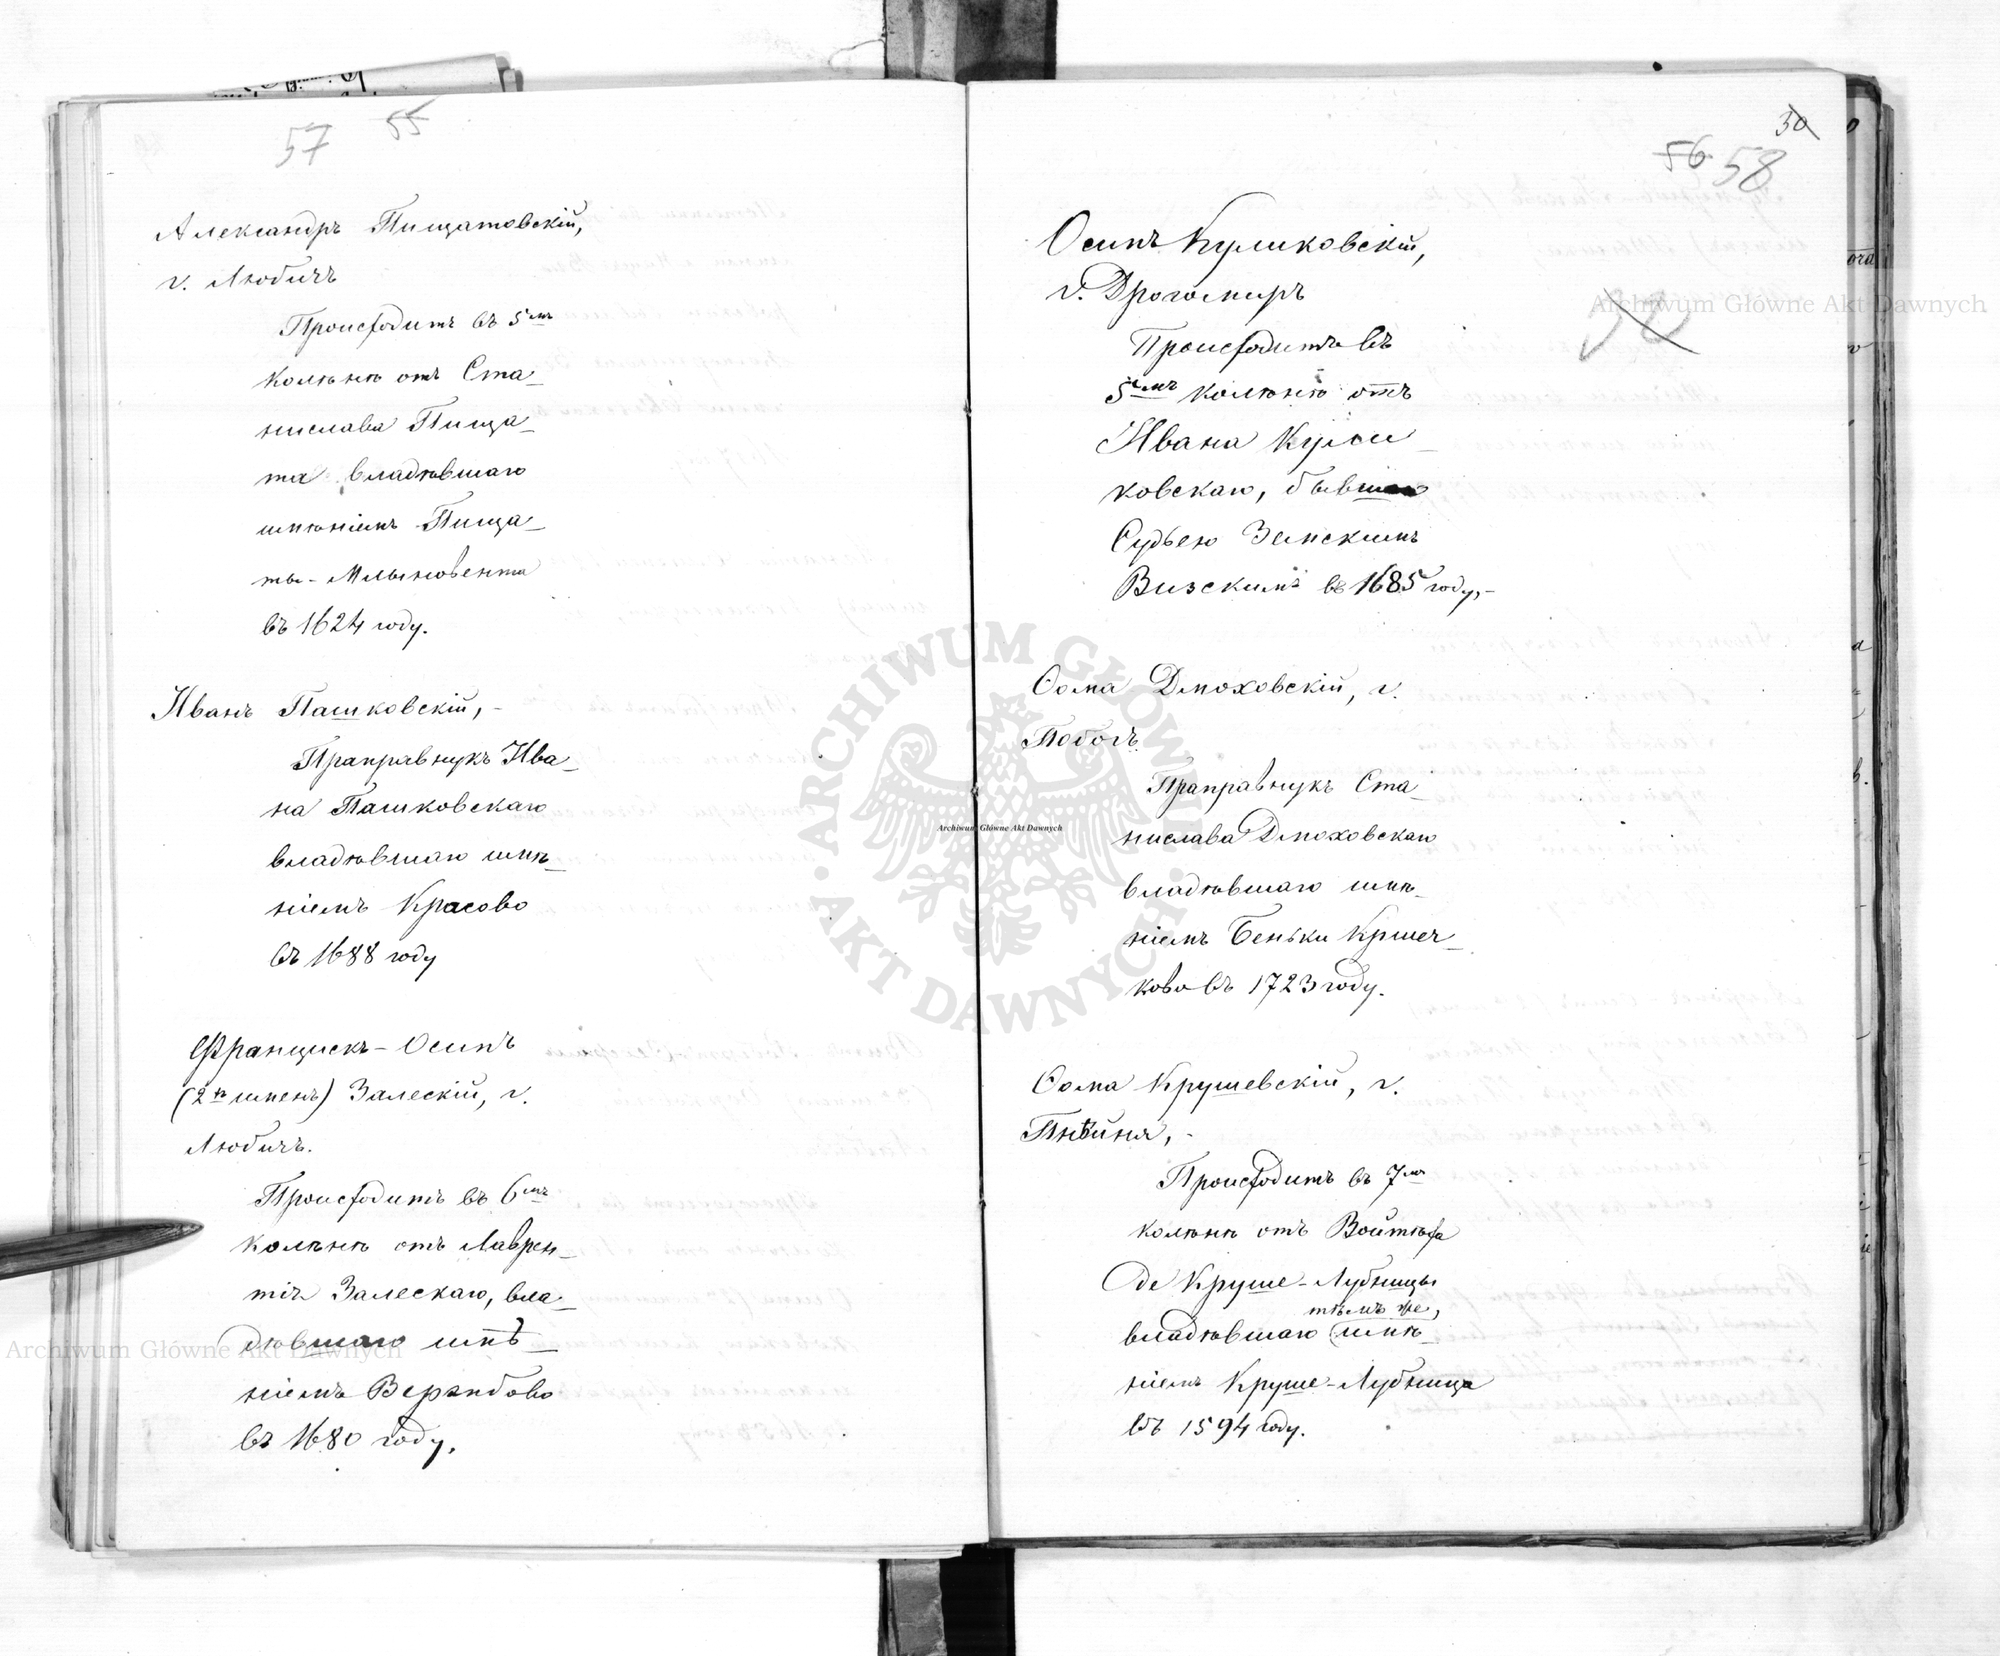 57 55
Александръ Пищатовскій,
г. Любичъ
Происходитъ въ 5мъ
колѣнѣ отъ Ста-
нислава Пища-
та владѣвшаго
имѣніемъ Пища-
ты-
въ 1624 году.
Иванъ Пашковскій, -
Праправнукъ Ива-
на Пашковскаго
владѣвшаго имѣ-
ніемъ Красово
въ 1688 году
Францискъ-Осипъ
(2хъ именъ) Залескій, г.
Любичъ.
Происходитъ въ 6мъ
колѣнѣ отъ Лаврен-
тія Залескаго, вла-
дѣвшаго имѣ-
ніемъ
въ 1680 году.
30
56 58
30
Осипъ Куликовскій,
г. Дрогомиръ
Происходитъ въ
5мъ колѣнѣ отъ
Ивана Кули-
ковскаго, бывшаго
Судьею Земскимъ
Визскимъ въ 1685 году, -
Ѳома Дмоховскій, г.
Побогъ.
Праправнукъ Ста-
нислава Дмоховскаго
владѣвшаго имѣ-
ніемъ Беньки Кршеч-
ково въ 1723 году.
Ѳома Крушевскій, г.
Пнѣйня, -
Происходитъ въ 7мъ
колѣнѣ отъ Войтѣха
де Круше-Лубницы
тѣмъ же,
владѣвшаго имѣ-
ніемъ Круше-Лубница
въ 1594 году.
Archiwum Główne Akt Dawnych
ARCHIWUM GŁÓWNE · AKT DAWNYCH ·
Archiwum Główne Akt Dawnych
Archiwum Główne Akt Dawnych